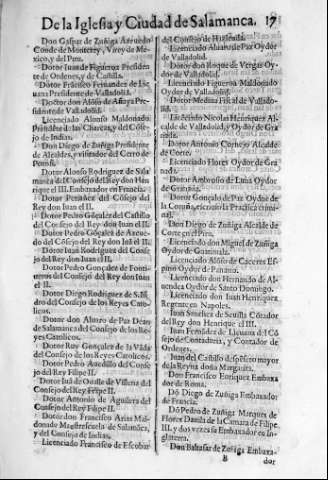 De la Iglesia y Ciudad de Salamanca. 17
Don Gaspar de Zuñiga Azeuedo
Conde de Monterey, Virey de Me-
xico, y del Peru.
Dotor Iuan de Figueroa Presiden
te de Ordenes, y de Castilla.
Dotor Francisco Fernandez de Lie
uana Presidente de Valladolid.
Doctor don Alõso de Anaya Presi-
dente de Valladolid.
Licenciado Alonso Maldonado
Presidente de las Charcas, y del Cõse
jo de Indias.
Don Diego de Zuñiga Presidente
de Alcaldes, y visitador del Cerro de
Potosi.
Dotor Alonso Rodriguez de Sala
manca del Consejo del Rey don Hen
rique el III. Embaxador en Francia.
Dotor del Cõsejo del
Rey don Iuan el II.
Dotor Pedro Gõçalez del Castillo
del Consejo del Rey don Iuan el II.
Dotor Pedro Gõçalez de Azeue-
do del Cõsejo del Rey don Iuã el II.
Dotor Iuan Rodriguez del Conse
jo del Rey don Iuan el II.
Dotor Pedro Gonçalez de Fonti-
ueros del Consejo del Rey don Iuan
el II.
Dotor Diego Rodriguez de S. Isi
dro del Consejo de los Reyes Cato-
licos.
Dotor don Aluaro de Paz Dean
de Salamanca del Consejo de los Re-
yes Catolicos.
Dotor Ruy Gonçalez de la
Consejo de los Reyes Catolicos.
Dotor Pedro Azedillo del Conse
jo del Rey Filipe II.
Dotor Iuã de Oualle de Villena del
Consejo del Rey Filipe II.
Dotor Antonio de Aguilera del
Consejo del Rey Filipe II.
Dotor don Francisco Arias Mal-
donado Maestrescuela de Salamanca,
y del Consejo de Indias.
Licenciado Francisco de Escobar
del Consejo de Hazienda.
Licenciado Aluaro de Paz Oydor
de Valladolid.
Dotor don Roque de Vergas Oy-
dor de Valladolid.
Licenciado Figueroa Maldonado
Oydor de Valladolid.
Dotor Medina Fiscal de Vallado-
lid.
Licenciado Nicolas Henriquez Al-
calde de Valladolid, y Oydor de Gra
nada.
Dotor Antonio Cornejo Alcalde
de Corte.
Licenciado Flores Oydor de Gra
nada.
Dotor Ambrosio de Luna Oydor
de Granada.
Dotor Gonçalo de Paz Oydor de
la Coruña,
nal.)
Don Diego de Zuñiga Alcalde de
Corte, del Peru.
Licenciado don Miguel de Zuñiga
Oydor de Guatemala.
Licenciado Alõso de Caceres Es-
pino Oydor de Panama.
Licenciado don Hernando de Al-
uendea Oydor de Santo Domingo.
Licenciado don Iuan Henriquez
Regente en Napoles.
Iuan Sanchez de Seuilla Cõtador
del Rey don Henrique el III.
Iuan Fernandez de Lieuana del Cõ
sejo de Contaduria, y Contador de
Ordenes.
Iuan del Castillo despẽsero mayor
de la Reyna doña Margarita.
Don Francisco Enriquez Embaxa
dor de Roma.
Dõ Diego de Zuñiga Embaxador
de Francia.
Dõ Pedro de Zuñiga Marques de
Flores Dauila de la Camara de Filipe
III. y dos vezes su Embaxador en In-
glaterra.
Don Baltasar de Zuñiga Embaxa-
B
dor